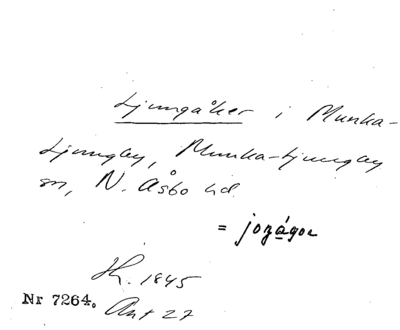 Ljungåker i Munka-
Ljungby, Munka-Ljungby
sn, N. Åsbo hd.
= jogágor
Hl. 1845
Nr 7264. Ant 27